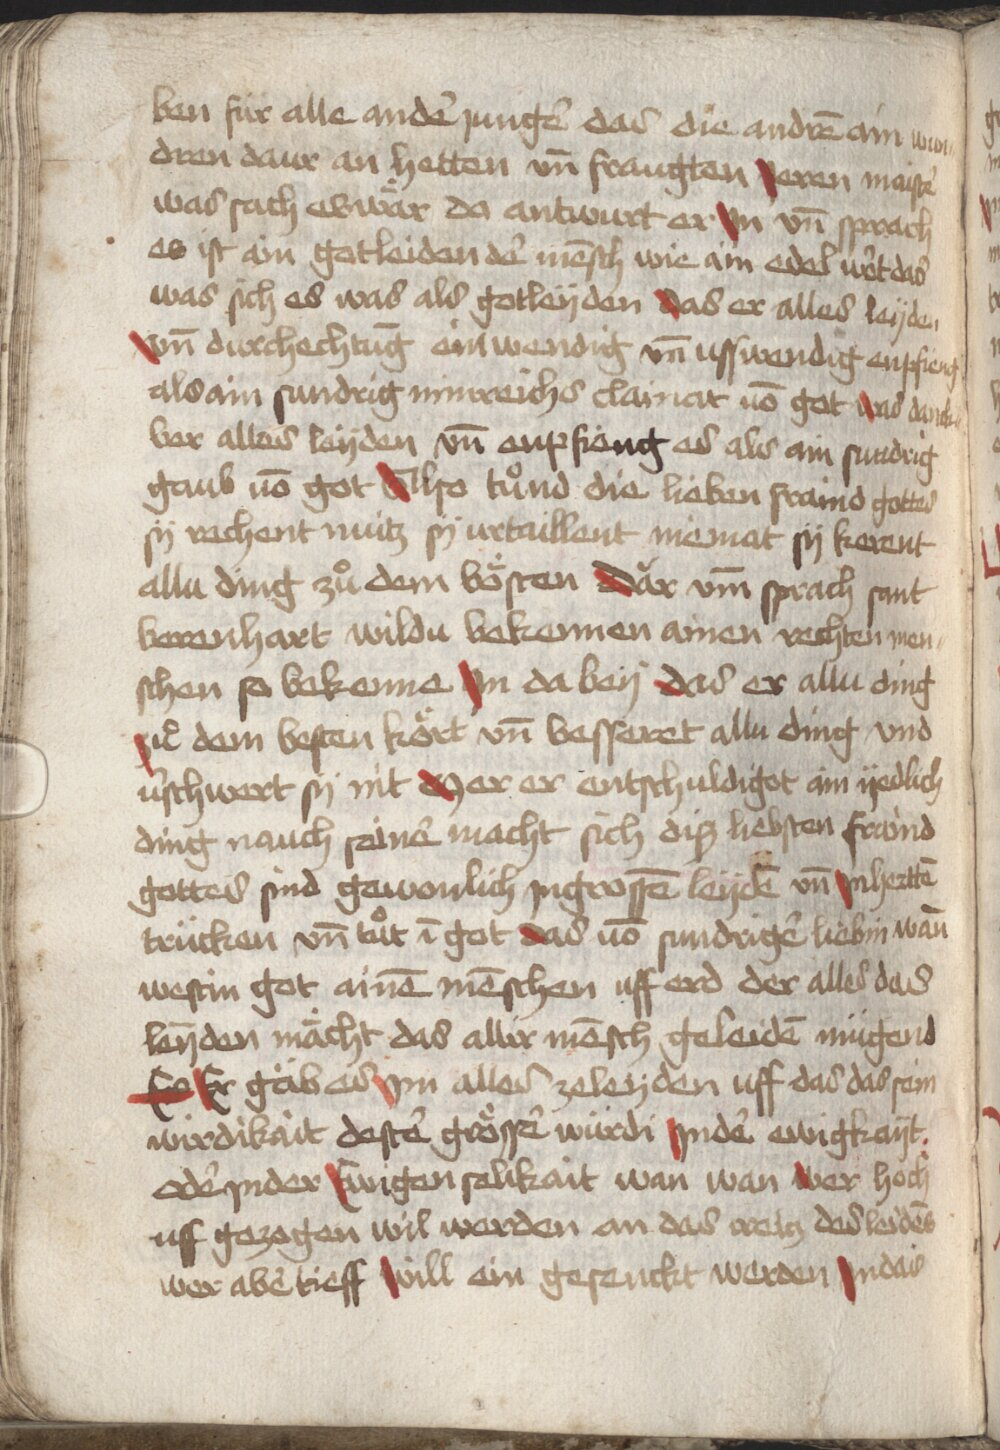 ben für alle ander̄ junger̄ das die andrē ain wun
dren daur an hetten vn̄ fraugten Jeren maister̄
was sach er wär da antwurt er Jn vn̄ sprach
es ist ain gotleidender̄ mēsch wie ain edel wͤrt das
was sich es was als gotleyden das er alles leyden
vn̄ durchechtūg einwendig vn̄ usswendig enpfieng
als ain sundrig minreichs clainat uō got was danck
ber alles leyden vn̄ enpfieng es als ain sundrig
gaub uō got Also tuͦnd die lieben fraind gottes
sy rechent nuitz sy urtaillent niemat sy kerent
allu ding zuͦ dem bösten Där vm̄ sprach sant
berenhart wildu bekennen ainen rechten men
schen so bekenne Jn da bey das er allu ding
zuͦ dem besten kört vn̄ besseret allu ding vnd
v̄schwert sy nit Mer er entschuldigot ain yedlich
ding nauch seiner̄ macht sich dis liebsten fraind
gottes sind gewonlich jn grossē leydē vn̄ Jn herttē
trücken vn̄ tuͦt ī got das uō sundriger̄ liebin wan̄
westin got ainē mēschen uff erd der alles das
leyden mächt das aller mēsch geleidē mügend
Eo Er gäb es Jm alles zeleyden uff das das sein
wirdikait dester̄ grösser̄ würdi Jn der̄ ewigkayt.
oder̄ jn der Ewigen salikait wan wan wer hoch
uff gezogen wil werden an das creitz des leidēs
wer aber̄ tieff will ein gesenckt werden Jn das